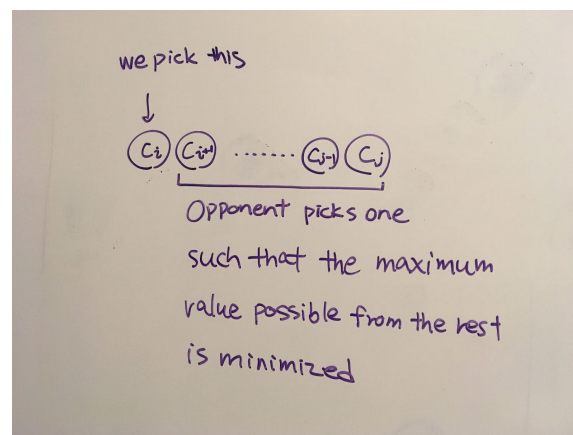 we pick this
Ci Ci+1 ....... Cj-1 Cj
Opponent picks one
such that the maximum
value possible from the rest
is minimized